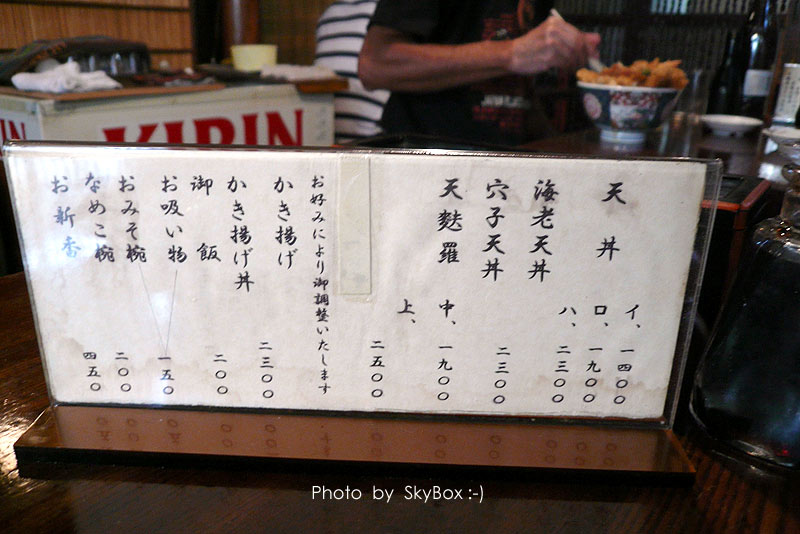 KIRIN
天丼
イ、一四〇〇
ロ、一九〇〇
ハ、二三〇〇
海老天丼
穴子天丼
二三〇〇
天麩羅
中、一九〇〇
上、
二五〇〇
お好みにより御調整いたします
かき揚げ
かき揚げ丼
二三〇〇
御飯
二〇〇
お吸い物
一五〇
おみそ椀
二〇〇
なめこ椀
四五〇
お新香
Photo by SkyBox :-)